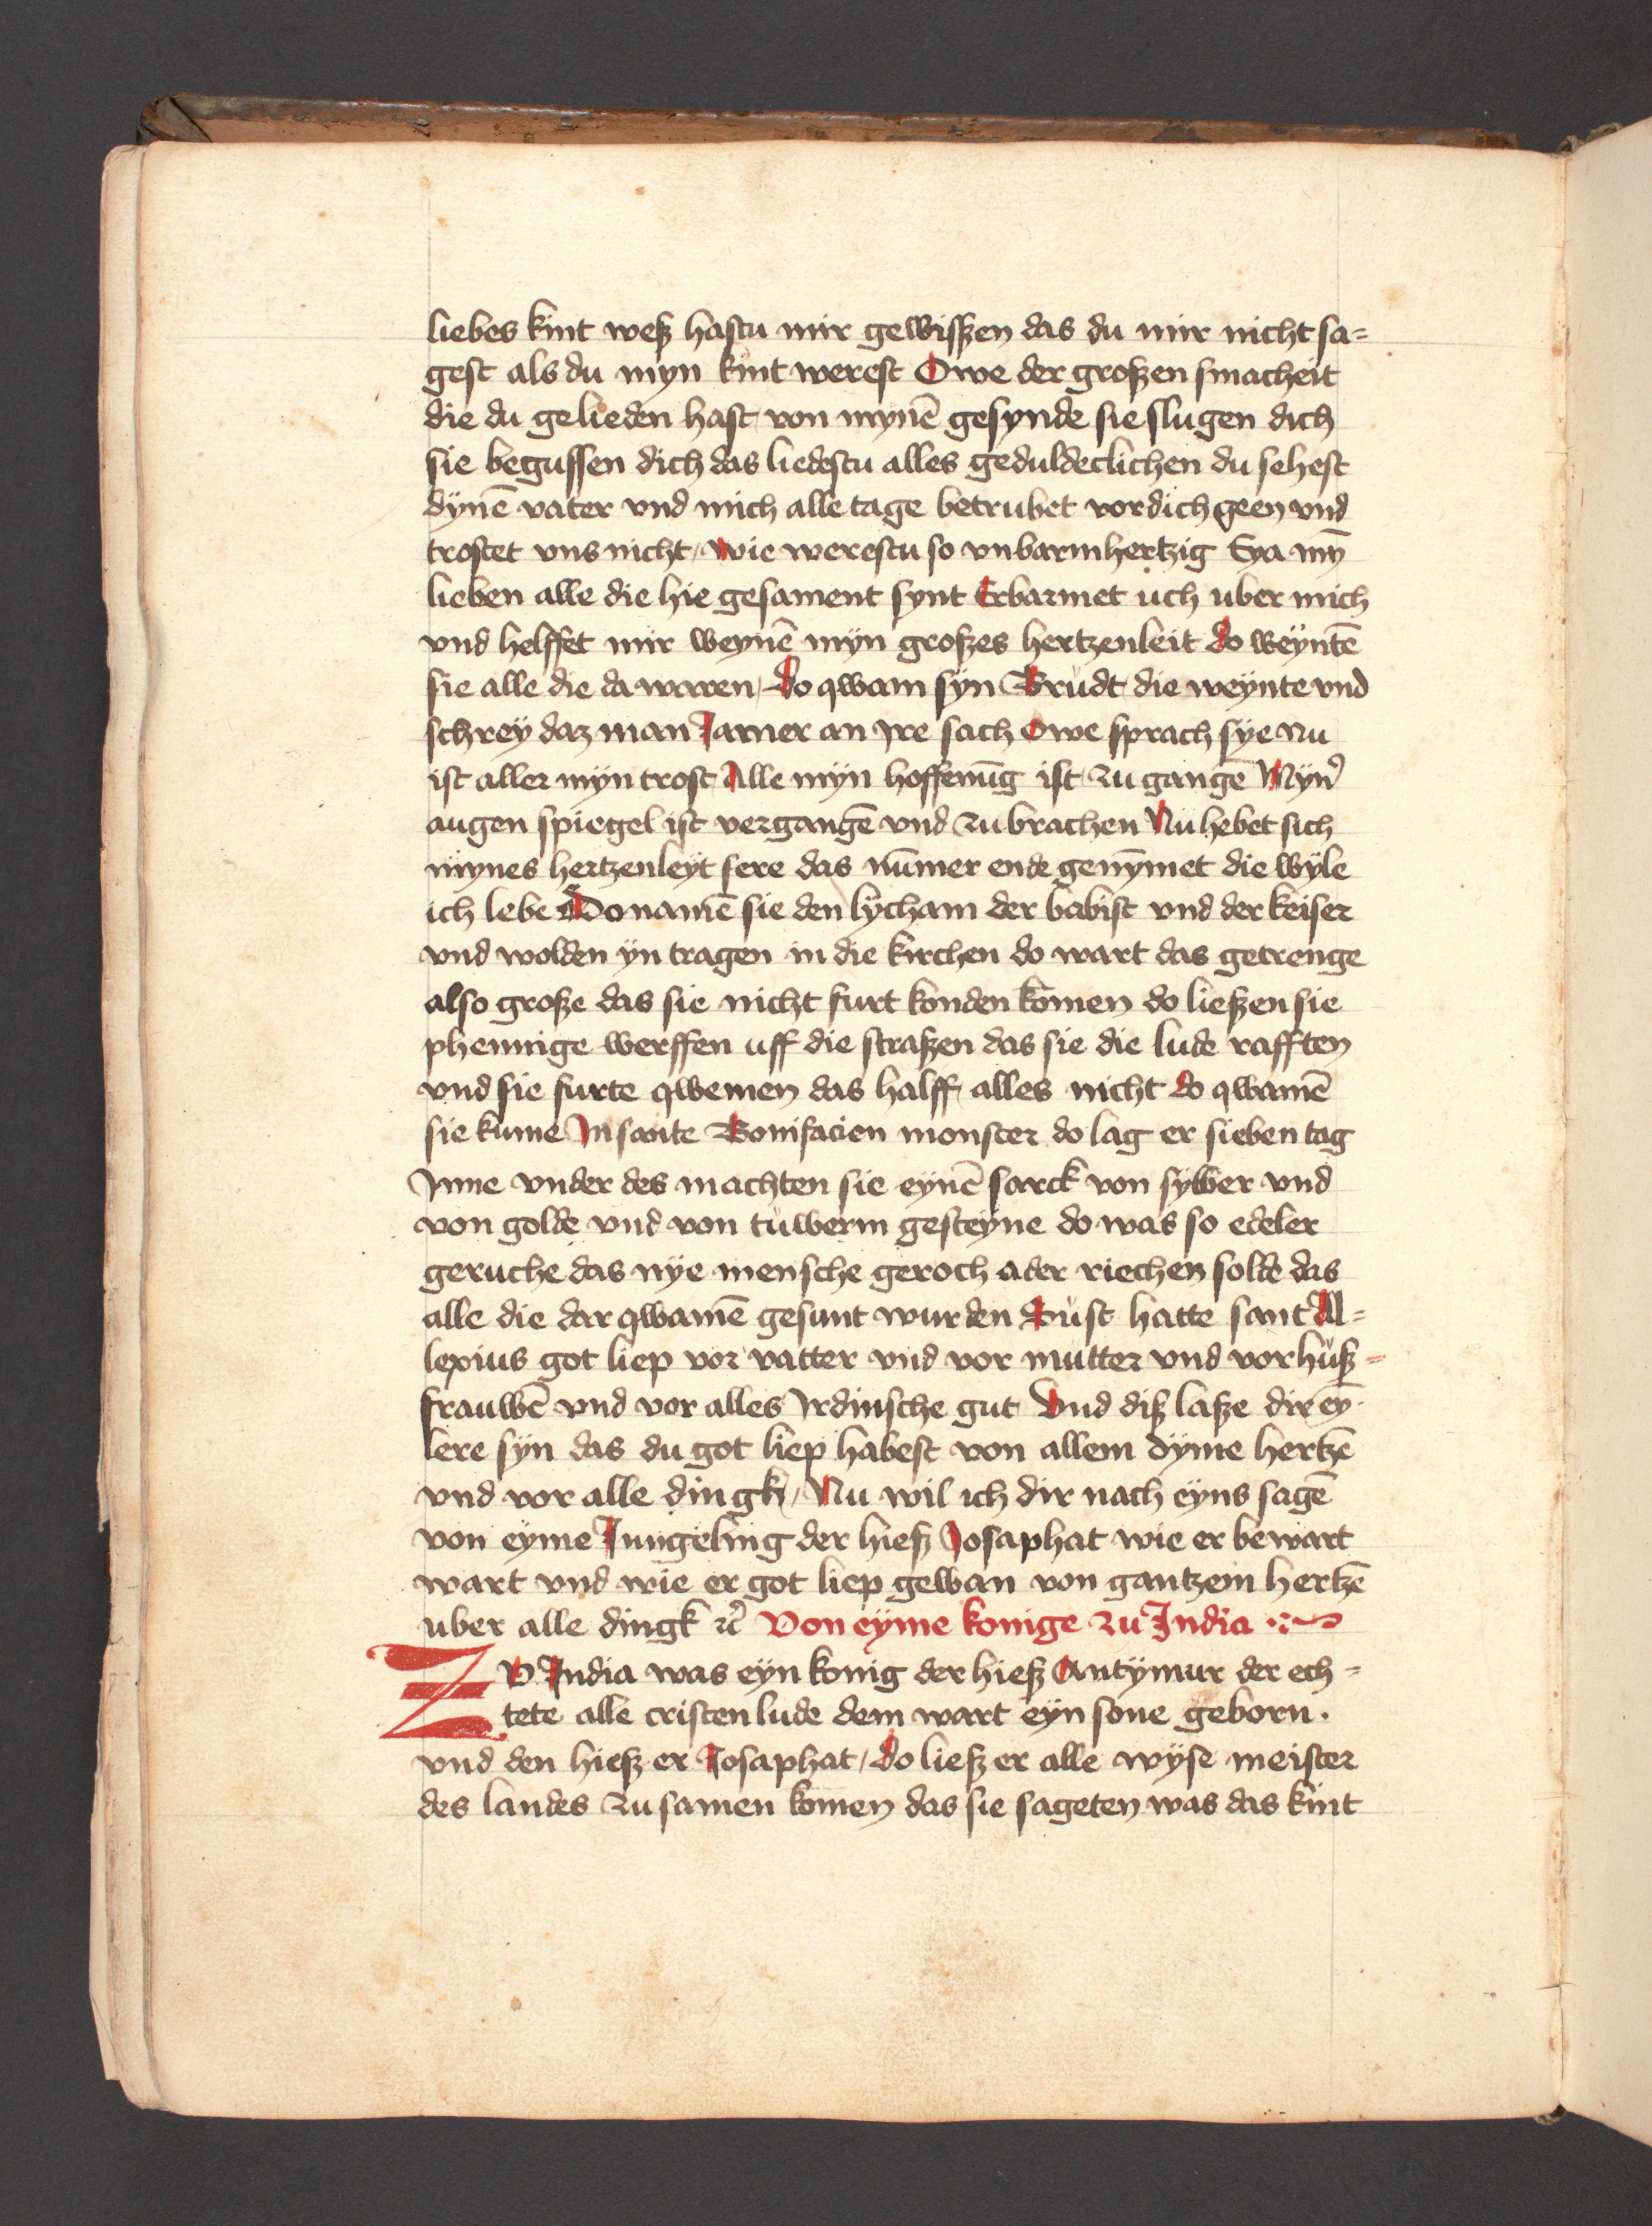 liebes kint weß hastu mir gewißen das du mir nicht sa=
gest als du myn kint werest Owe der großen smacheit
die du gelieden hast von mynē gesynde sie slugen dich
sie begussen dich das liedestu alles geduldeclichen du sehest
dÿnē vater vnd mich alle tage betrubet vor dich geen vnd
trostet vns nicht / wie werestu so vnbarmhertzig Eya mȳ
lieben alle die hie gesament synt Erbarmet uch uber mich
vnd helffet mir weynē mÿn großes hertzenleit do weÿntē
sie alle die da waren / do qwam sÿn Brudt die weÿnte vnd
schreÿ daz man Jamer an Jre sach Owe sprach sÿe nu
ist aller mÿn trost Alle mÿn hoffenūg ist zu gangē Mÿnˀ
augen spiegel ist vergangē vnd zu brachen Nu hebet sich
mynes hertzenleÿt sere das nūmer ende genȳmet die wÿle
ich lebe Do namē sie den lÿcham der babist vnd der keiser
vnd wolden ÿn tragen in die kirchen do wart das getrenge
also große das sie nicht furt konden kōmen do ließen sie
phennige werffen uff die straßen das sie die lude rafften
vnd sie furte qwemen das halff alles nicht do qwamē
sie kume Jn sante Bonifacien monster do lag er sieben tag
Jnne vnder des machten sie eynē sarck von sylber vnd
von golde vnd von tuwerm gesteÿne do was so edeler
geruche das nÿe mensche geroch ader riechen solde das
alle die dar qwamē gesunt wurden Sust hatte sant Al=
lexius got liep vor vatter vnd vor mutter vnd vor huß=
frauwē vnd vor alles Jrdinsche gut Vnd diß laße dir eȳ
lere sÿn das du got liep habest von allem dÿme hertzē
vnd vor alle dingk / Nu wil ich dir nach eÿns sagē
von eÿme Jungeling der hieß Josaphat wie er bewart
wart vnd wie er got liep gewan von gantzem hertzē
uber alle dingk ꝛcˀ Von eÿme konige zu India
ZV India was eÿn konig der hieß Antÿmur der ech=
tete alle cristen lude dem wart eÿn sone geborn .
vnd den hieß er Josaphat / do ließ er alle wÿse meister
des landes zu samen komen das sie sageten was das kint